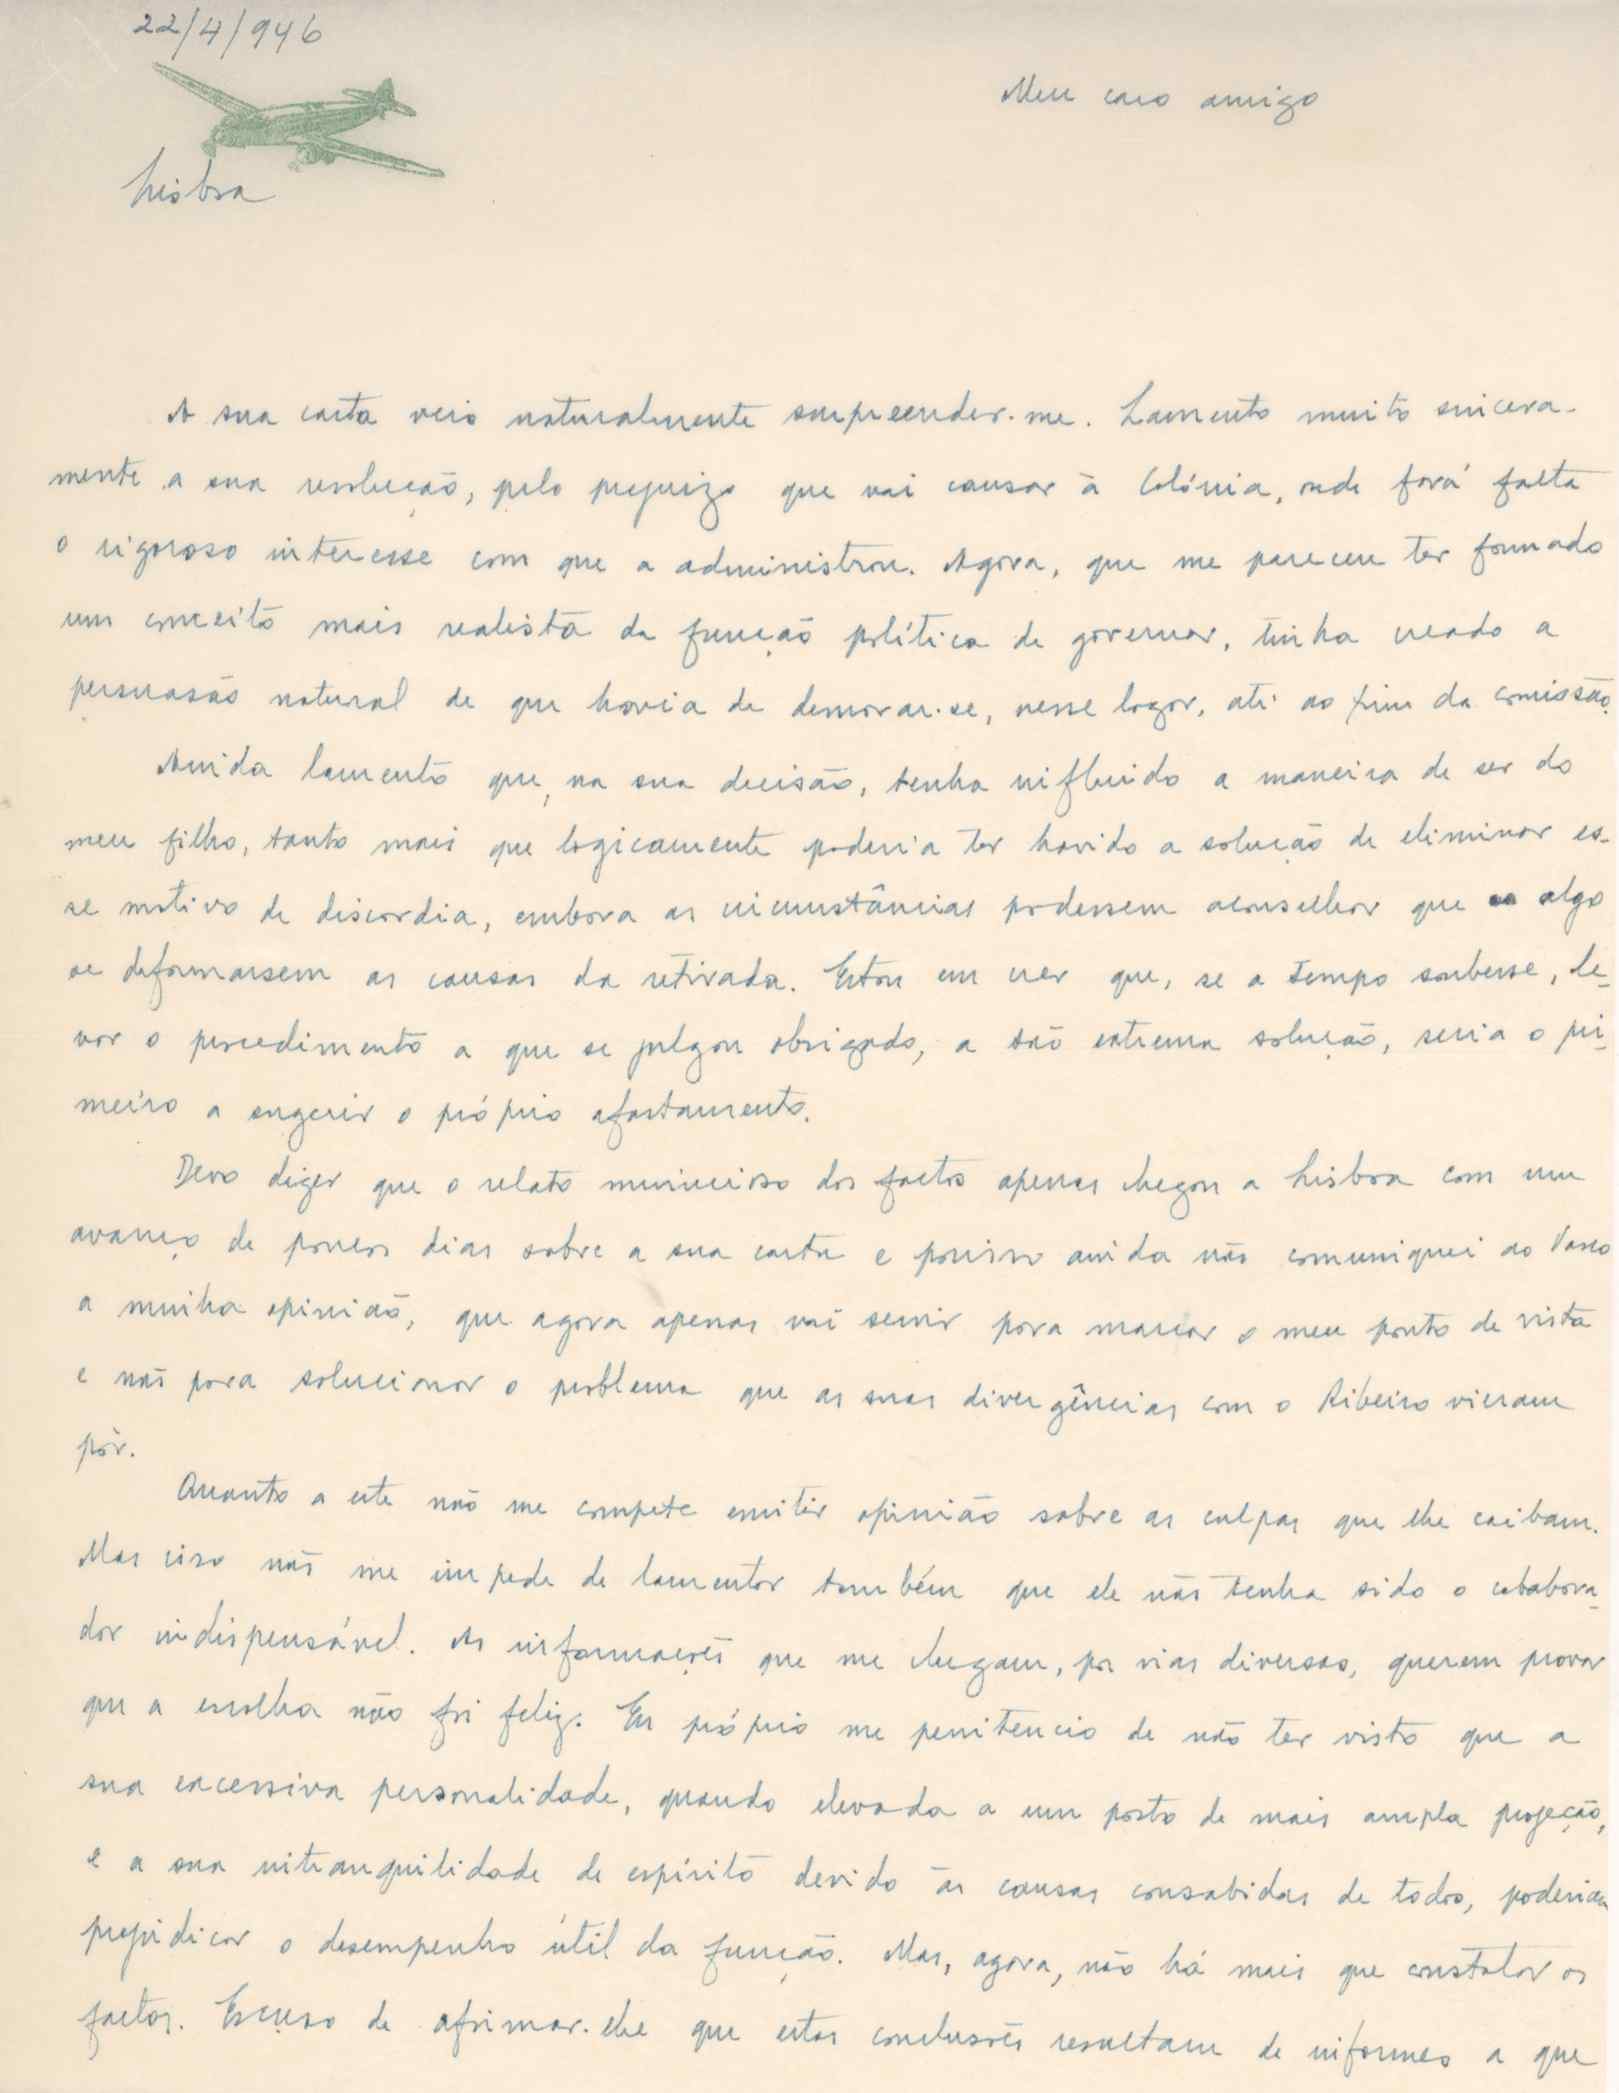 22/4/946
Meu caro amigo
Lisboa
A sua carta veio naturalmente surpreender-me. Lamento muito sincera-
mente a sua resolução, pelo prejuizo que vai causar à Colónia, onde fará falta
o rigoroso interesse com que a administrou. Agora, que me pareceu ter formado
um conceito mais realista da função política de governar, tinha creado a
persuasão natural de que havia de demorar-se, nesse logar, até ao fim da comissão.
Ainda lamento que, na sua decisão, tenha influido a maneira de ser do
meu filho, tanto mais que logicamente poderia ter havido a solução de eliminar es-
se motivo de discordia, embora as circunstâncias podessem aconselhar que algo
se deformassem as causas da retirada. Estou em crer que, se a tempo soubesse, le-
var o procedimento a que se julgou obrigado, a tão extrema solução, seria o pri-
meiro a sugerir o próprio afastamento.
Devo dizer que o relato minucioso dos factos apenas chegou a Lisboa com um
avanço de poucos dias sobre a sua carta e porisso ainda não comuniquei ao Vasco
a minha opinião, que agora apenas vai servir para marcar o meu ponto de vista
e não para solucionar o problema que as suas divergências com o Ribeiro vieram
pôr.
Quanto a este não me compete emitir opinião sobre as culpas que lhe caibam.
Mas isso não me impede de lamentar também que ele não tenha sido o colabora-
dor indispensável. As informações que me chegam, por vias diversas, querem provar
que a escolha não foi feliz. Eu próprio me penitencio de não ter visto que a
sua excessiva personalidade, quando elevada a um posto de mais ampla projeção,
e a sua intranquilidade de espírito devido às causas consabidas de todos, poderiam
prejudicar o desempenho útil da função. Mas, agora, não há mais que constatar os
factos. Escuso de afirmar-lhe que estas conclusões resultam de informes a que